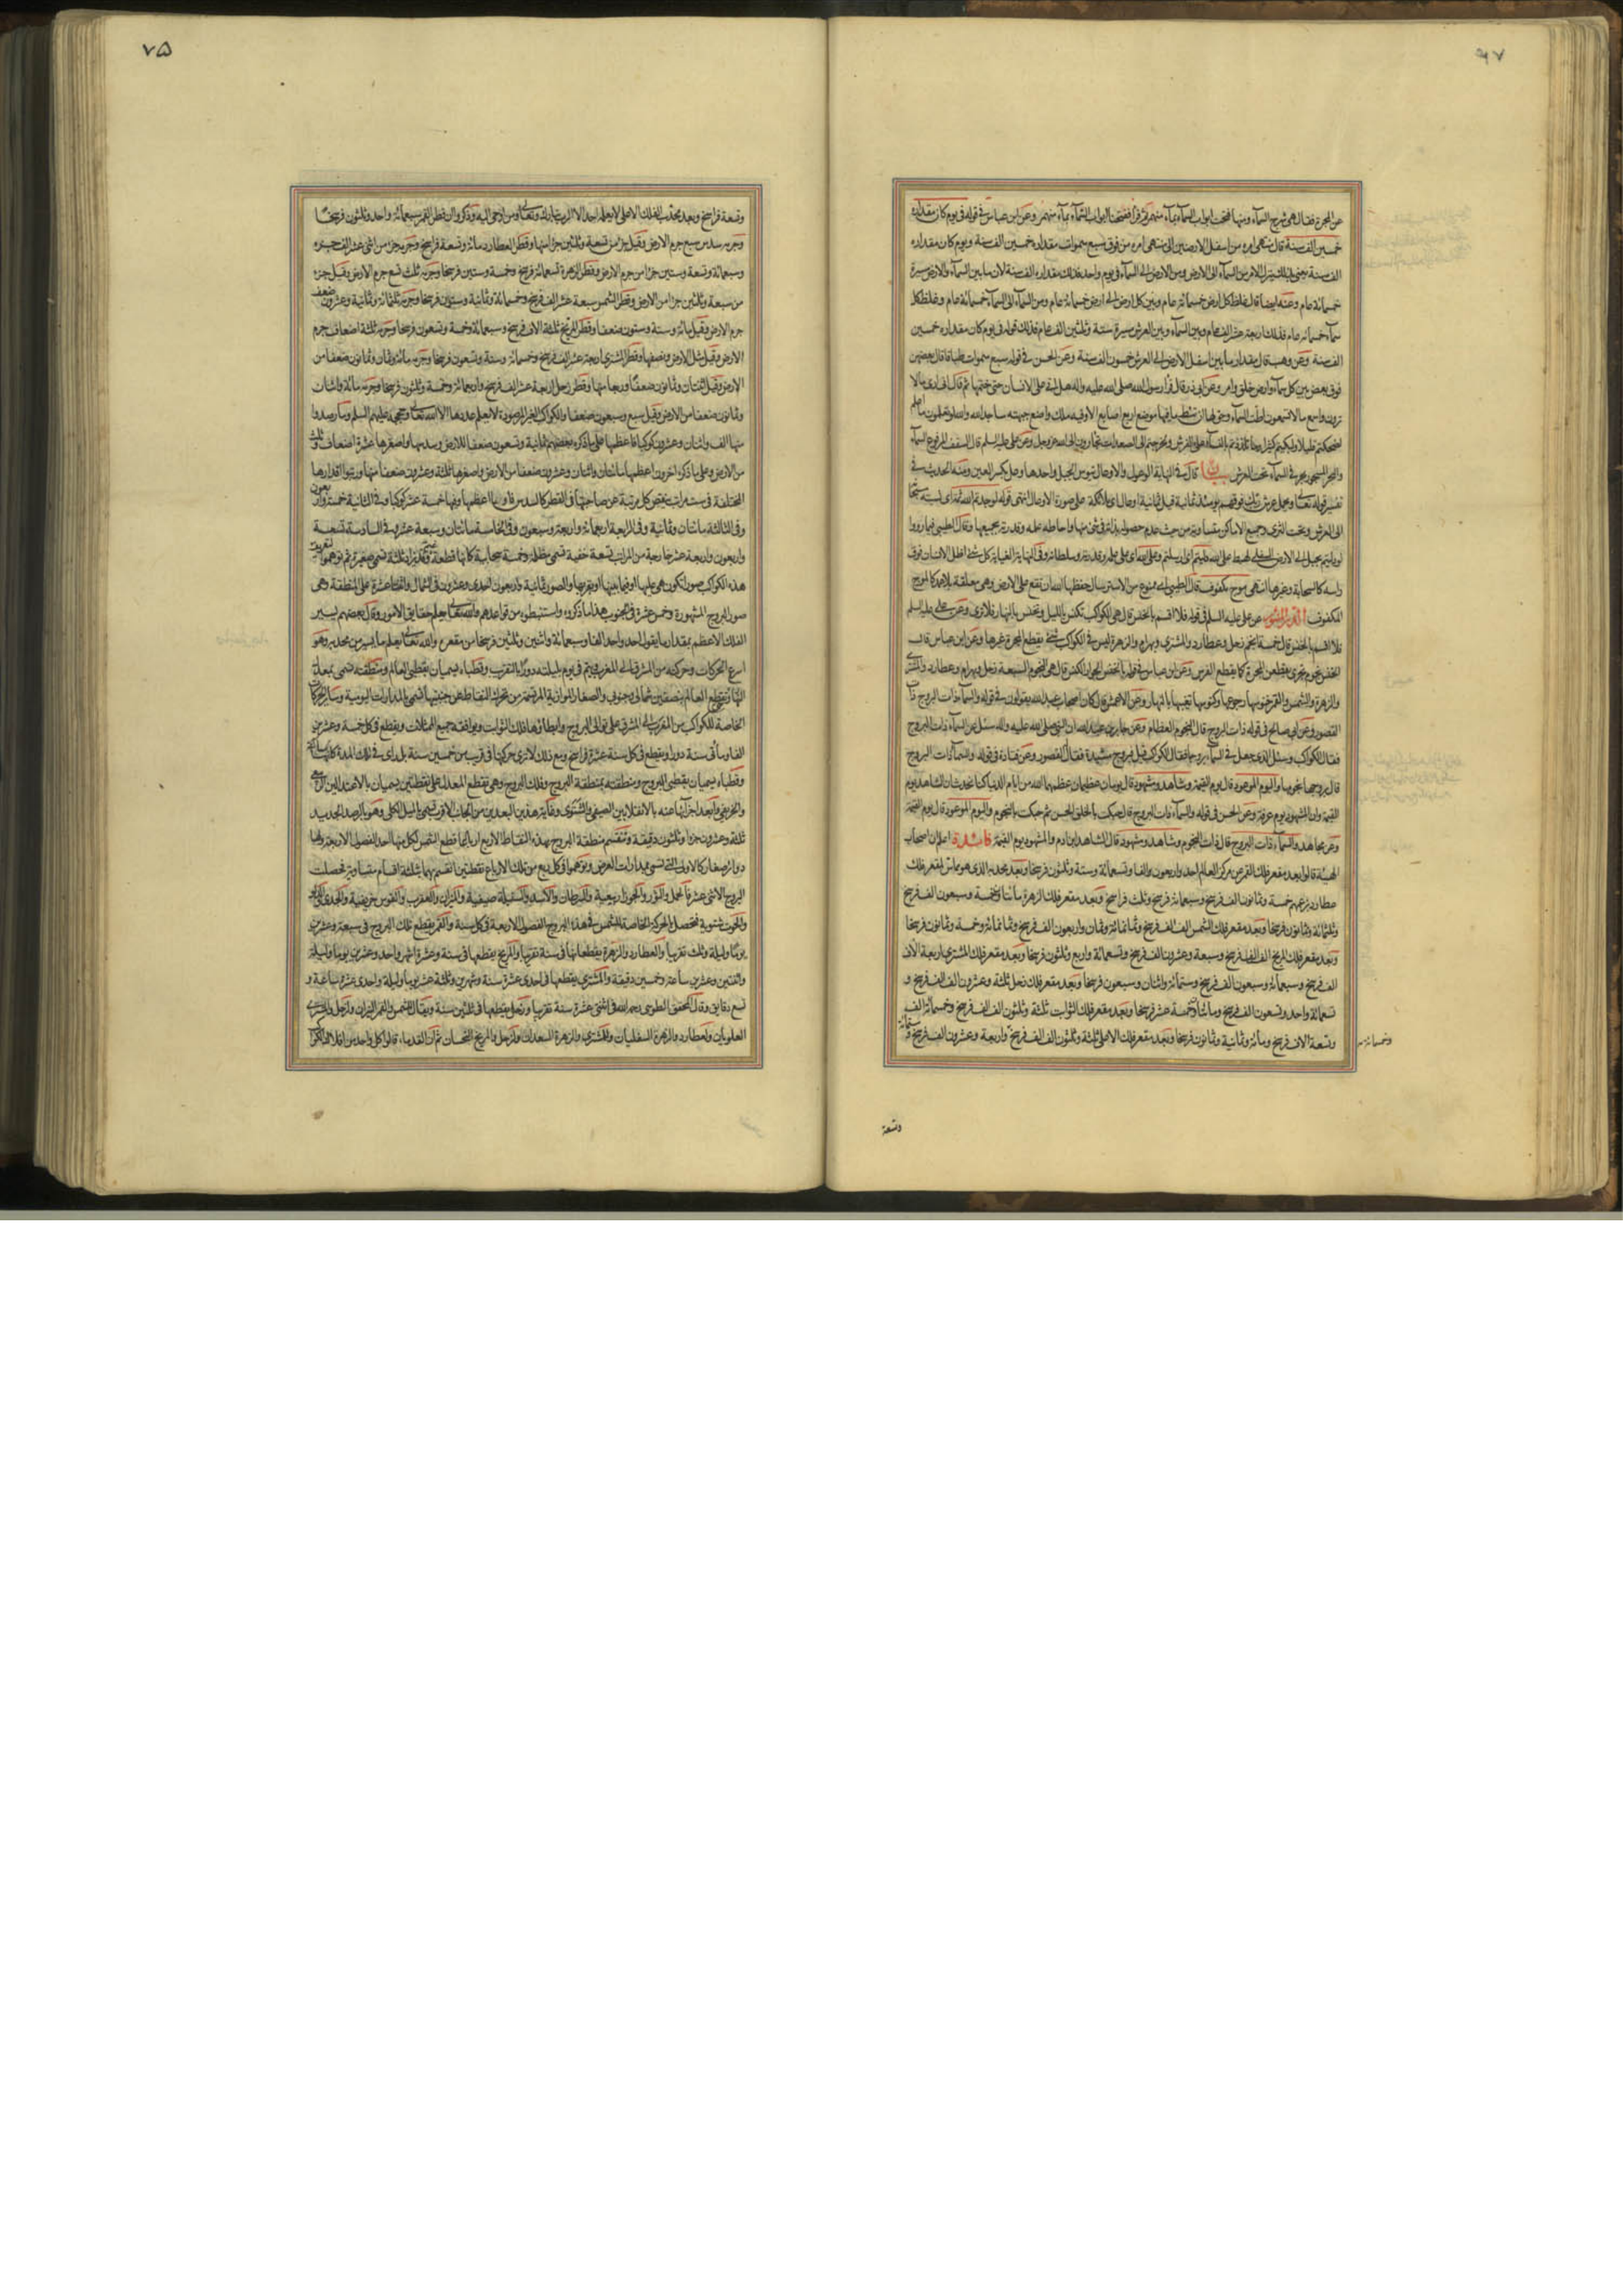 عن المجرة فقال هی شرج السمآء ومنها فتحت ابواب السمآء بمآء منهمر ثم قرأ ففتحنا ابواب السمآء بمآء منهمر وعن ابن عباس فی قوله فی یوم کان مقداره
خمسین الف سنة قال منتهی امره من اسفل الارضین الی منتهی امره من فوق سبع سموات مقداره خمسین الف سنة ویوم کان مقداره
الف سنة یعنی بذلک ینزل الامر من السمآء الی الارض ومن الارض الی السمآء فی یوم واحد فذلک مقداره الف سنة لان ما بین السمآء والارض مسیرة
خمسمائة عام وعنه ایضا قال غلظ کل ارض خمسمائة عام وبین کل ارض الی ارض خمسمائة عام ومن السمآء الی السمآء خمسمائة عام وغلظ کل
سمآء خمسمائة عام فذلک اربعة عشر الف عام وبین السمآء وبین العرش مسیرة ستة وثلثین الف عام فذلک قوله فی یوم کان مقداره خمسین
الف سنة وعن وهب قال مقدار ما بین اسفل الارض الی العرش خمسون الف سنة وعن الحسن فی قوله سبع سموات طباقا قال بعضهن
فوق بعض بین کل سمآء وارض خلق وامر وعن ابی ذر قال قرأ رسول الله صلی الله علیه واله هل اتی علی الانسان حتی ختمها ثم قال انی اری ما لا
ترون واسمع ما لا تسمعون اطت السمآء وحق لها ان تئط ما فیها موضع اربع اصابع الا وفیه ملک واضع جبهته ساجدا لله والله لو تعلمون ما اعلم
لضحکتم قلیلا ولبکیتم کثیرا وما تلذذتم بالنسآء علی الفرش ولخرجتم الی الصعدات تجأرون الی الله عز وجل وعن علی علیه السلم قال السقف المرفوع السمآء
والبحر المسجور بحر فی السمآء تحت العرش بیان قال فی النهایة الوعول والاوعال تیوس الجبل واحدها وعل بکسر العین ومنه الحدیث فی
تفسیر قوله تعالی ویحمل عرش ربک فوقهم یومئذ ثمانیة قیل ثمانیة اوعال ای ملائکة علی صورة الاوعال انتهی
الی العرش وتحت الثری وجمیع الاماکن متساویة من حیث عدم حصوله بذاته فی شئ منها واحاطة علمه وقدرته بجمیعها وقال الطیبی فیما رووا
لو دلیتم بحبل الی الارض السفلی لهبط علی الله دلیتم ای ارسلتم وعلی الله ای علی علمه وقدرته وسلطانه وفی النهایة الغیایة کل شئ اظل الانسان فوق
راسه کالسحابة وغیرها انتهی موج مکفوف قال الطیبی ای ممنوع من الاسترسال حفظها الله ان تقع علی الارض وهی معلقة بلا عمد کالموج
المکفوف الدر المنثور عن علی علیه السلم فی قوله فلا اقسم بالخنس قال هی الکواکب تکنس باللیل وتخنس بالنهار فلا تری وعن علی علیه السلم
فلا اقسم بالخنس قال خمسة انجم زحل وعطارد والمشتری وبهرام والزهرة لیس فی الکواکب شئ یقطع المجرة غیرها وعن ابن عباس قال
الخنس نجوم تجری یقطعن المجرة کما یقطع الفرس وعن ابن عباس فی قوله بالخنس الجوار الکنس قال هی النجوم السبعة زحل وبهرام وعطارد والمشتری
والزهرة والشمس والقمر خنوسها رجوعها وکنوسها تغیبها بالنهار وعن الاعمش قال کان اصحاب عبد الله یقولون فی قوله والسمآء ذات البروج ذات
القصور وعن ابی صالح فی قوله ذات البروج قال النجوم العظام وعن جابر بن عبد الله ان النبی صلی الله علیه واله سئل عن السمآء ذات البروج
فقال الکواکب وسئل الذی جعل فی السمآء بروجا فقال الکواکب قیل فبروج مشیدة فقال القصور وعن قتادة فی قوله والسمآء ذات البروج
قال بروجها نجومها والیوم الموعود قال یوم القیمة وشاهد ومشهود قال یومان عظیمان عظمهما الله من ایام الدنیا کنا نحدث ان الشاهد یوم
القیمة وان المشهود یوم عرفة وعن الحسن فی قوله والسمآء ذات البروج قال حبکت بالخلق الحسن ثم حبکت بالنجوم والیوم الموعود قال یوم القیمة
وعن مجاهد والسمآء ذات البروج قال ذات النجوم وشاهد ومشهود قال الشاهد ابن ادم والمشهود یوم القیمة فائدة اعلم ان اصحاب
الهیئة قالوا بعد مقعر فلک القمر عن مرکز العالم احد واربعون الفا وتسعمائة وستة وثلثون فرسخا وبعد محدبه الذی هو مماس لمقعر فلک
عطارد بزعمهم خمسة وثمانون الف فرسخ وسبعمائة فرسخ وثلث فراسخ وبعد مقعر فلک الزهرة مائتا وخمسة وسبعون الف فرسخ
وثلثمائة وثمانون فرسخا وبعد مقعر فلک الشمس الف الف فرسخ وثمانمائة وثمان واربعون الف فرسخ وثمانمائة وخمسة وثمانون فرسخا
وبعد مقعر فلک المریخ الف الف فرسخ وسبعة وعشرون الف فرسخ وتسعمائة واربع وثلثون فرسخا وبعد مقعر فلک المشتری اربعة الاف
الف فرسخ وسبعمائة وسبعون الف فرسخ وستمائة واثنان وسبعون فرسخا وبعد مقعر فلک زحل ثلثة وعشرون الف الف فرسخ و
تسعمائة واحد وتسعون الف فرسخ ومائتان وخمسة عشر فرسخا وبعد مقعر فلک الثوابت ثلثة وثلثون الف الف فرسخ وخمسمائة الف
وتسعة الاف فرسخ ومائة وثمانیة وثمانون فرسخا وبعد مقعر فلک الاعلی ثلثة وثلثون الف الف فرسخ واربعة وعشرون الف فرسخ وستمائة
وخمسمائة
وتسعة
۷۵
وتسعة فراسخ وبعد محدب الفلک الاعلی لا یعلمه احد الا الرب تبارک وتعالی ومن اوحی الیه وذکروا ان قطر القمر سبعمائة واحد وثلثون فرسخا
وجرمه سدس سبع جرم الارض وقیل جزء من تسعة وثلثین جزءا منها وقطر العطارد مائة وتسعة فراسخ وجرمه جزء من اثنی عشر الف جزء
وسبعمائة وتسعة وستین جزءا من جرم الارض وقطر الزهرة تسعمائة فرسخ وخمسة وستین فرسخا وجرمه ثلث تسع جرم الارض وقیل جزء
من سبعة وثلثین جزءا من الارض وقطر الشمس سبعة عشر الف فرسخ وخمسمائة وثمانیة وستون فرسخا وجرمه ثلثمائة وثمانیة وعشرون ضعف
جرم الارض وقیل مائة وستة وستون ضعفا وقطر المریخ ثلثة الاف فرسخ وسبعمائة وخمسة وتسعون فرسخا وجرمه ثلثة اضعاف جرم
الارض وقیل مثل الارض ونصفها وقطر المشتری اربعة عشر الف فرسخ وخمسمائة وستة وتسعون فرسخا وجرمه مائة وثمان وثمانون ضعفا من
الارض وقیل اثنتان وثمانون ضعفا وربعا منها وقطر زحل اربعة عشر الف فرسخ واربعمائة وخمسة وثلثون فرسخا وجرمه مائة واثنان
وثمانون ضعفا من الارض وقیل سبع وسبعون ضعفا والکواکب الغیر المرصودة لا یعلم عددها الا الله تعالی وحججه علیهم السلم وما رصدوا
منها الف واثنان وعشرون کوکبا فاعظمها علی ما ذکره بعضهم ثمانیة وتسعون ضعفا للارض وسدسها واصغرها عشرة اضعاف وثلث
من الارض وعلی ما ذکره اخرون اعظمها مائتان واثنان وعشرون ضعفا من الارض واصغرها ثلثة وعشرون ضعفا منها ورتبوا اقدارها
المختلفة فی ست مراتب ینقص کل مرتبة عن صاحبتها فی القطر کالسدس فاولها اعظمها وفیها خمسة عشر کوکبا وفی الثانیة خمسة واربعون
وفی الثالثة مائتان وثمانیة وفی الرابعة اربعمائة واربعة وسبعون وفی الخامسة مائتان وسبعة عشر وفی السادسة تسعة
واربعون واربعة عشر خارجة من المراتب تسعة خفیة تسمی مظلمة وخمسة سحابیة کانها قطعة غیم ثم توهموا لتعریف
هذه الکواکب صورا تکون هی علیها او فیما بینها او بقربها والصور ثمانیة واربعون احدی وعشرون فی الشمال واثنتا عشرة علی المنطقة وهی
صور البروج المشهورة وخمس عشرة فی الجنوب هذا ما ذکروه واستنبطوه من قواعدهم والله تعالی یعلم حقایق الامور وقال بعضهم یسیر
الفلک الاعظم بمقدار ما یقول احد واحد الفا وسبعمائة واثنین وثلثین فرسخا من مقعره والله تعالی یعلم ما یسیر من محدبه وهو
اسرع الحرکات وحرکته من المشرق الی المغرب ویتم فی یوم بلیلته دورة بالتقریب وقطباه یسمیان بقطبی العالم ومنطقته تسمی بمعدل
النهار وتقطع العالم بنصفین شمالی وجنوبی والصغار الموازیة المرتسمة من تحرک النقاط عن جنبتیها تسمی بالمدارات الیومیة وسایر الحرکات
الخاصة للکواکب من المغرب الی المشرق علی توالی البروج وابطاؤها فلک الثوابت ویوافقه جمیع الممثلات ویقطع فی کل خمسة وعشرین
الفا ومأتی سنة دورا ویقطع فی کل سنة عشرة فراسخ ومع ذلک لا تری حرکتها فی قریب من خمسین سنة بل یری فی تلک المدة کانها ساکنة
وقطباه یسمیان بقطبی البروج ومنطقته بمنطقة البروج وفلک البروج وهی تقطع المعدل علی نقطتین یسمیان بالاعتدالین الربیعی
والخریفی وابعد اجزائها عنه بالانقلابین الصیفی والشتوی وغایة هذین البعدین من الجانبین تسمی بالمیل الکلی وهو بالرصد الجدید
ثلثة وعشرون جزءا وثلثون دقیقة وتنقسم منطقة البروج بهذه النقاط الاربع ارباعا قطع الشمس لکل منها احد الفصول الاربعة ولها
دوائر صغار کالاولی التی تسمی مدارات العرض وتوهموا فی کل ربع من تلک الارباع نقطتین انقسم بهما بثلثة اقسام متساویة فحصلت
البروج الاثنی عشر فالحمل والثور والجوزاء ربیعیة والسرطان والاسد والسنبلة صیفیة والمیزان والعقرب والقوس خریفیة والجدی والدلو
والحوت شتویة فتحصل بالحرکة الخاصة للشمس فی هذه البروج الفصول الاربعة فی کل سنة والقمر یقطع تلک البروج فی سبعة وعشرین
یوما ولیلة وثلث تقریبا والعطارد والزهرة یقطعانها فی سنة تقریبا والمریخ یقطعها فی سنة وعشرة اشهر واحد وعشرین یوما ولیلة
واثنتین وعشرین ساعة وخمسین دقیقة والمشتری یقطعها فی احدی عشرة سنة وشهرین وثلثة عشر یوما ولیلة واحدی عشرة ساعة و
تسع دقایق وقال المحقق الطوسی رحمه الله فی اثنتی عشرة سنة تقریبا وزحل یقطعها فی ثلثین سنة ویقال للشمس والقمر النیران ولزحل والمشتری
العلویان ولعطارد والزهرة السفلیان وللمشتری والزهرة السعدان ولزحل والمریخ النحسان ثم ان القدماء قالوا کل واحد من افلاک الکواکب